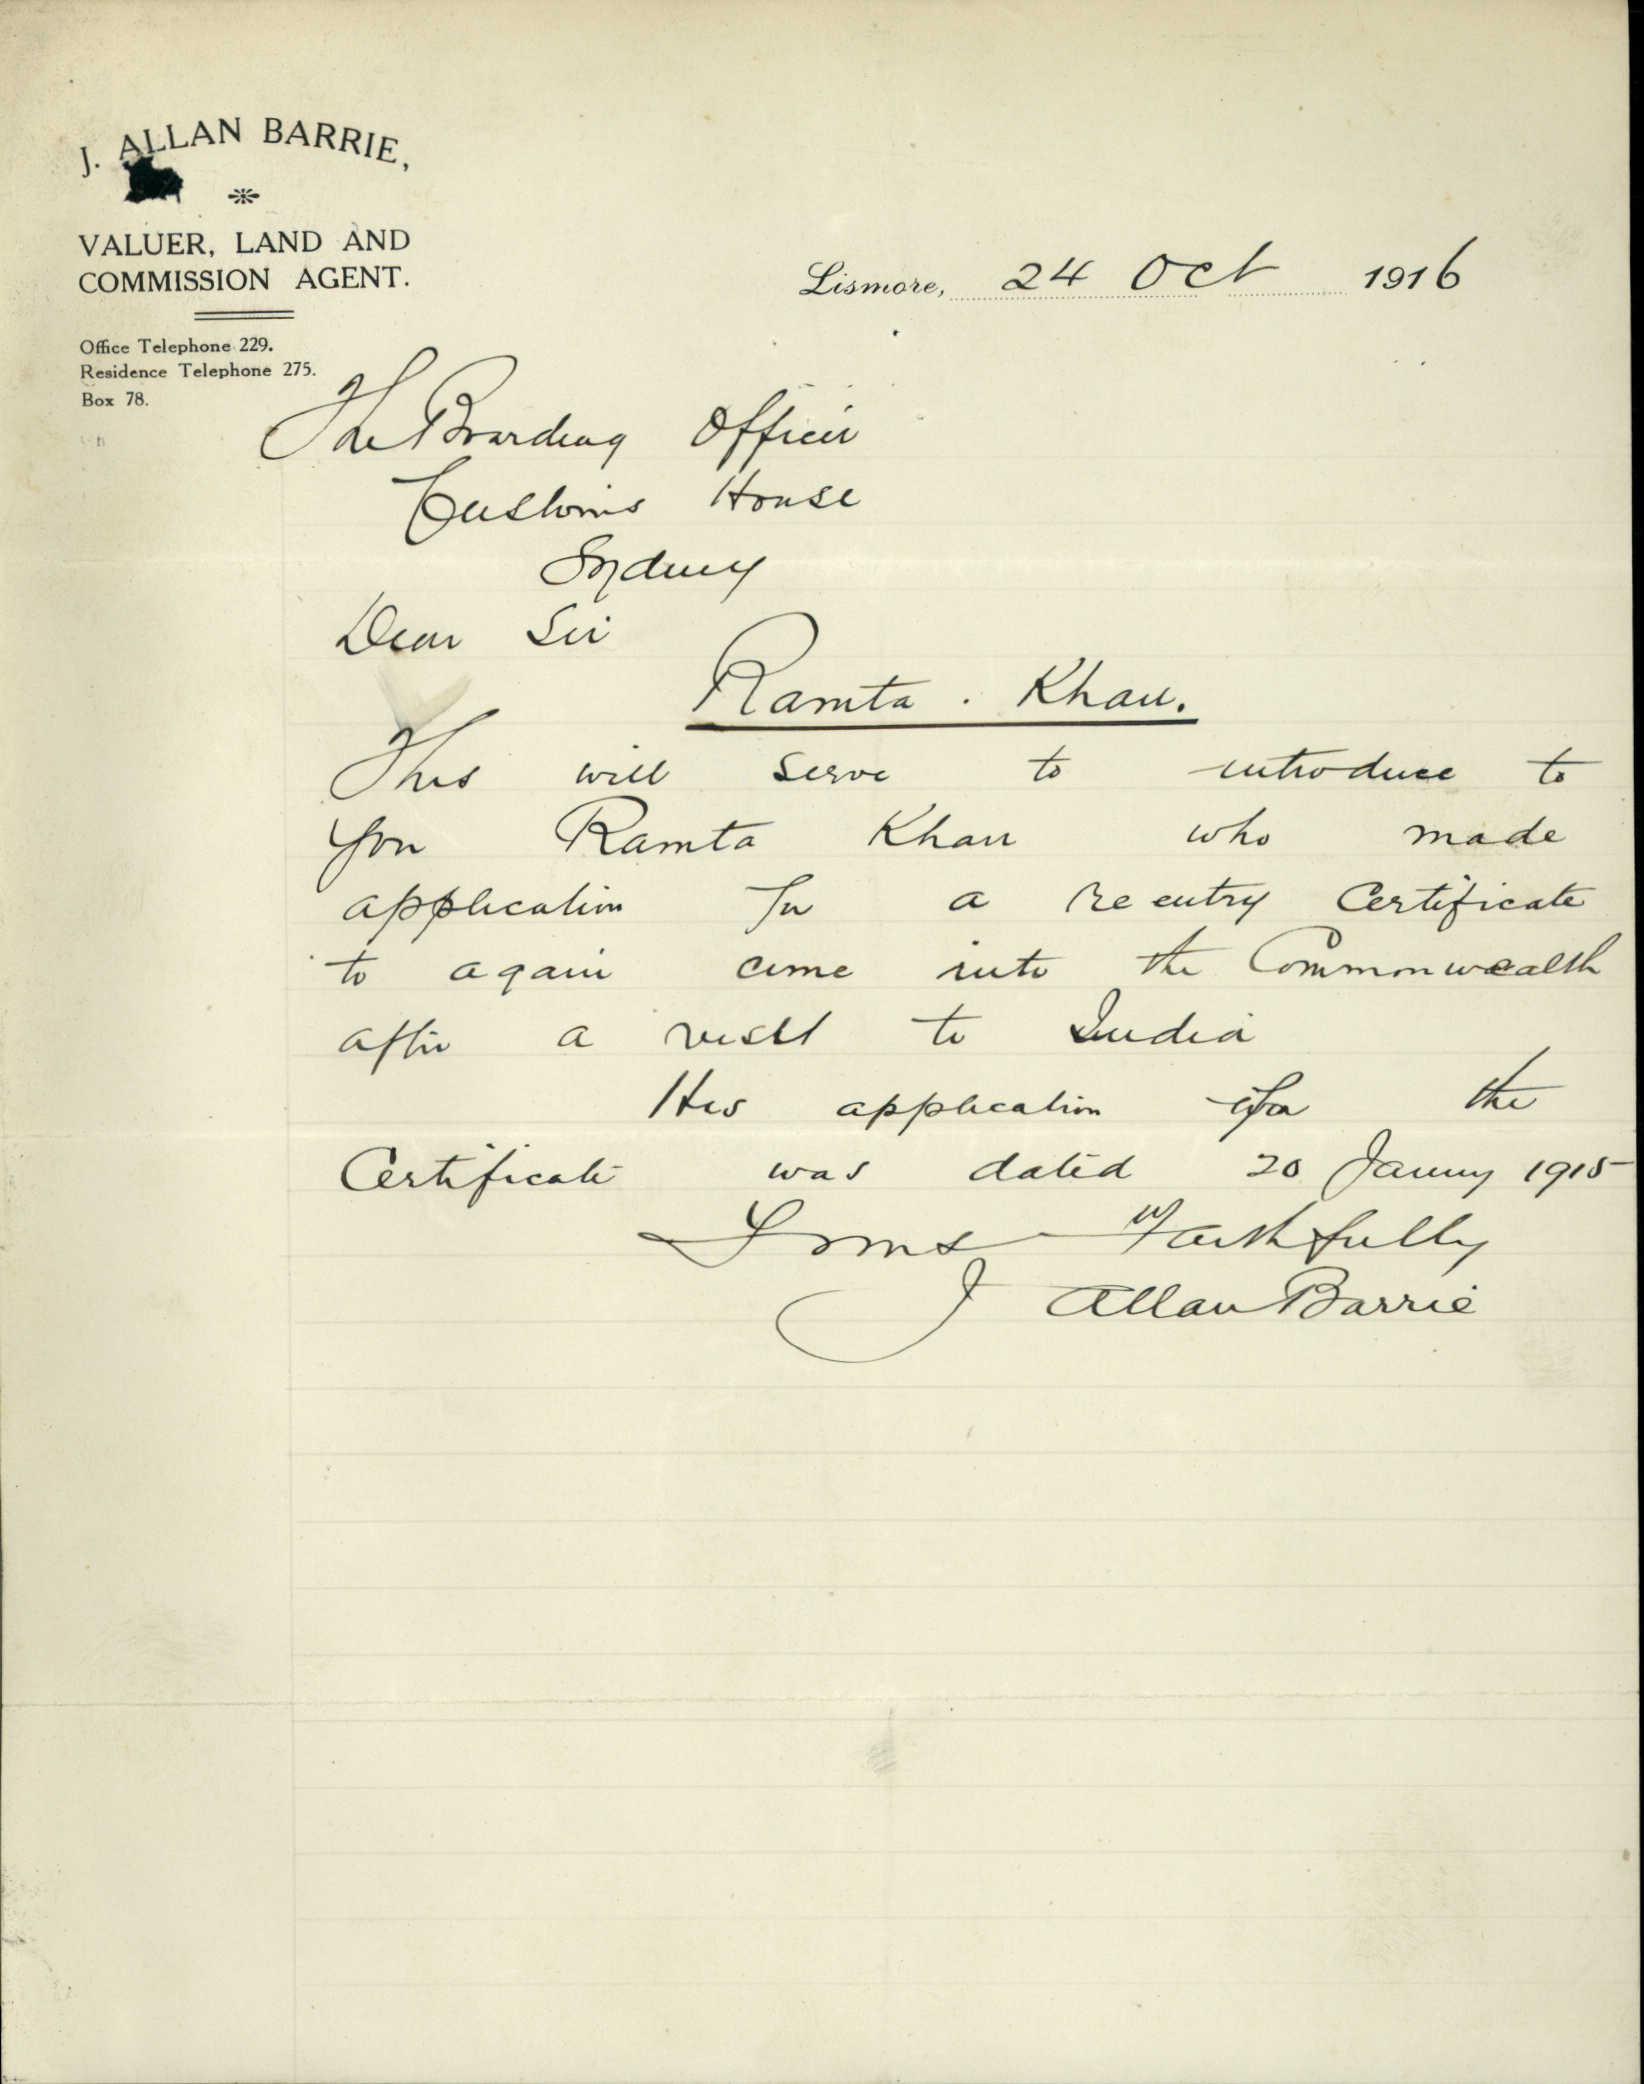 J. ALLAN BARRIE,
VALUER, LAND AND
COMMISSION AGENT.
Office Telephone 229.
Residence Telephone 275.
Box 78.
Lismore, 24 Oct 1916
The Boarding Officer
Customs House
Sydney
Dear Sir
Ramta . Khan.
This will serve to introduce to
you Ramta Khan who made
application for a re entry Certificate
to again come into the Commonwealth
after a visit to India
His application for the
Certificate was dated 20 January 1915
Yours Faithfully
J Allan Barrie